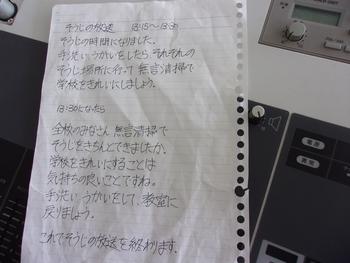 そうじの放送 13:15〜13:30
そうじの時間になりました。
手洗い、うがいをしたら、それぞれの
そうじ場所に行って無言清掃で
学校をきれいにしましょう。
13:30になったら
全校のみなさん 無言清掃で
そうじをきちんとできましたか。
学校をきれいにすることは
気持ちの良いことですね。
手洗い、うがいをして、教室に
戻りましょう。
これでそうじの放送を終わります。
電源